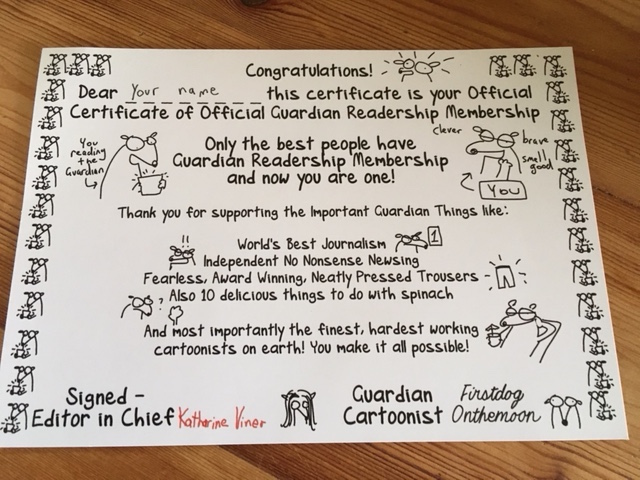 Congratulations!
Dear Your name this certificate is your Official
Certificate of Official Guardian Readership Membership
You
reading
the
Guardian
Only the best people have
Guardian Readership Membership
and now you are one!
clever
brave
smell
good
You
Thank you for supporting the Important Guardian Things like:
!!
World's Best Journalism
1
Independent No Nonsense Newsing
Fearless, Award Winning, Neatly Pressed Trousers
Also 10 delicious things to do with spinach
?
And most importantly the finest, hardest working
cartoonists on earth! You make it all possible!
Signed -
Editor in Chief Katharine Viner
Guardian
Cartoonist
Firstdog
Onthemoon